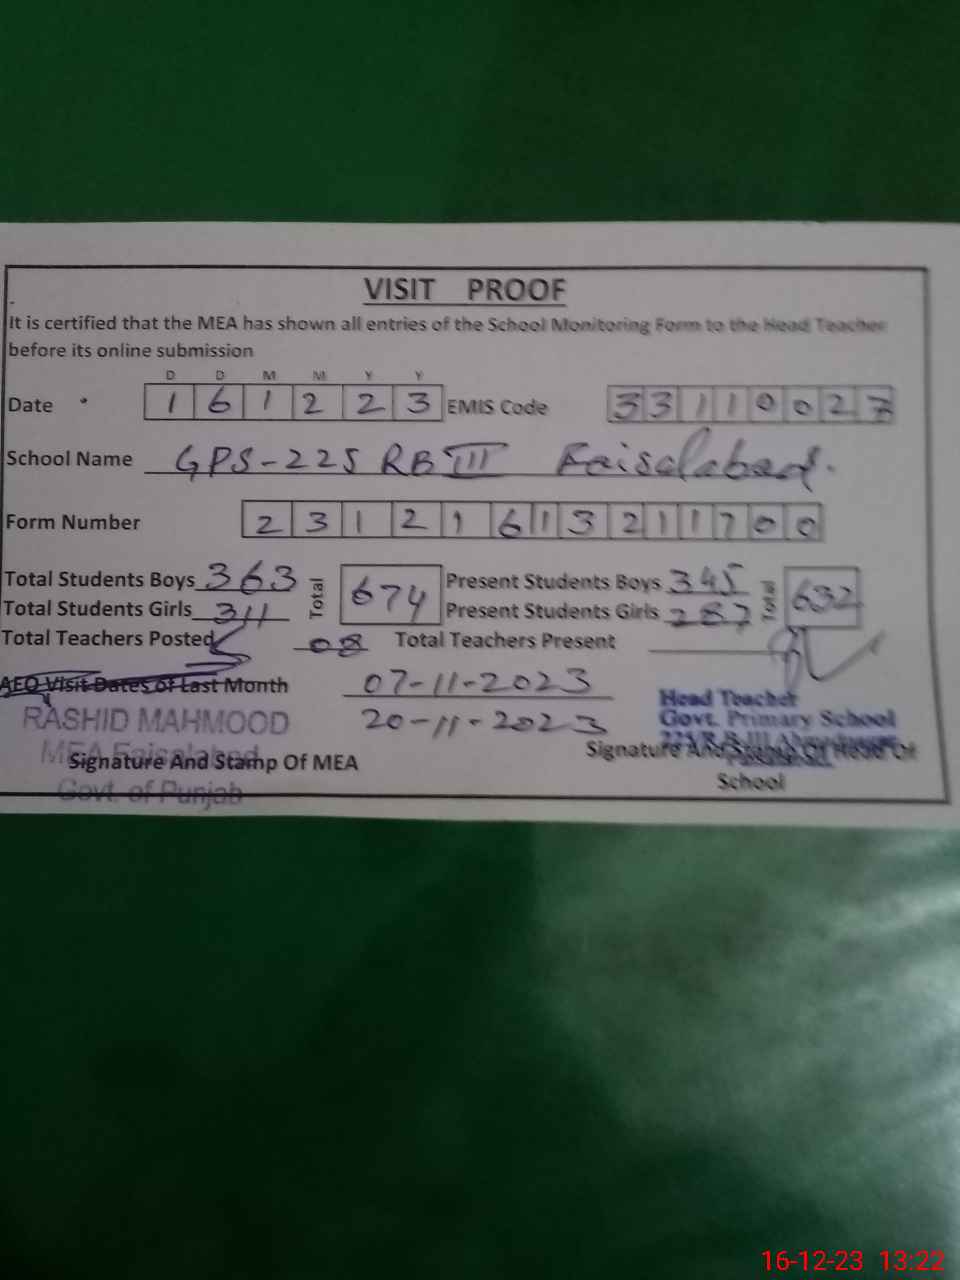 VISIT PROOF
It is certified that the MEA has shown all entries of the School Monitoring Form to the Head Teacher
before its online submission
D D M M Y Y
Date 1 6 1 2 2 3 EMIS Code 3 3 1 1 0 0 2 7
School Name GPS-225 RB III Faisalabad.
Form Number 2 3 1 2 1 6 1 3 2 1 1 7 0 0
Total Students Boys 363 Total 674 Present Students Boys 345 Total 632
Total Students Girls 311 Present Students Girls 287
Total Teachers Posted 08 Total Teachers Present
AEO Visit Dates of Last Month 07-11-2023
20-11-2023
RASHID MAHMOOD
MEA Faisalabad
Govt. of Punjab
Signature And Stamp Of MEA
Head Teacher
Govt. Primary School
225/R.B III
Signature And Stamp Of Head Of
School
16-12-23 13:22